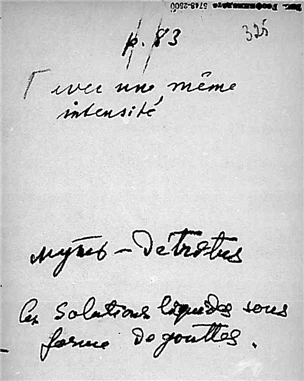 p. 83
325
Γ avec une même
intensité
муть – Détritus
les solutions liquides sous
forme de gouttes.